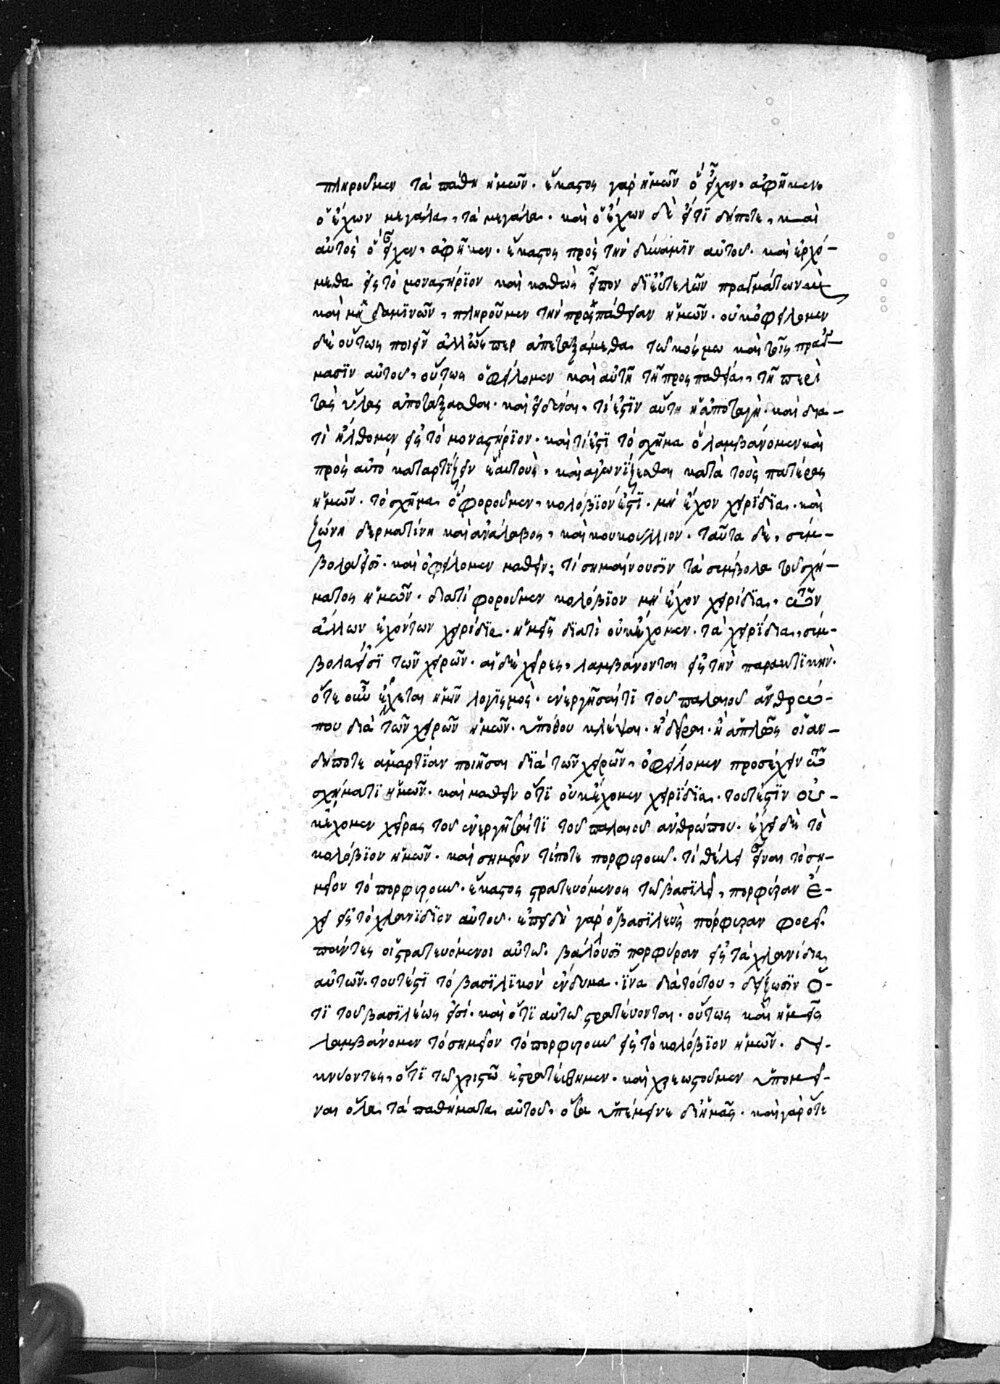 πληροῦμεν τὰ πάθη ἡμῶν· ἕκαστος γὰρ ἡμῶν ὃ εἶχεν, ἀφῆκεν,
ὁ ἔχων μεγάλα, τὰ μεγάλα· καὶ ὁ ἔχων δὲ ὅτι δήποτε, καὶ
αὐτὸς ὃ εἶχεν, ἀφῆκεν· ἕκαστος πρὸς τὴν δύναμϊν αὐτοῦ· καὶ ἐρχό-
μεθα εἰς τὸ μοναστήρϊον καὶ καθὼς εἶπον δϊ εὐτελῶν πραγμάτων
καὶ μηδαμϊνῶν, πληροῦμεν τὴν προσπάθειαν ἡμῶν· οὐκ ὀφείλομεν
δὲ οὕτως ποιεῖν ἀλλ ὥσπερ ἀπεταξάμεθα τῷ κόσμω καὶ τοῖς πράγ-
μασϊν αὐτοῦ, οὕτως ὀφείλομεν καὶ αὐτῆ τῆ προσπαθεία, τῆ περὶ
τὰς ὕλας ἀποτάξασθαι· καὶ εἰδέναι, τί ἐστϊν αὕτη ἡ ἀποταγὴ· καὶ δια-
τὶ ἤλθομεν εἰς τὸ μοναστήρϊον· καὶ τί ἐστϊ τὸ σχῆμα ὃ λαμβάνομεν καὶ
πρὸς αὐτὸ καταρτίζειν ἑαυτοὺς, καὶ ἀγωνίζεσθαι κατὰ τοὺς πατέρας
ἡμῶν· τὸ σχῆμα ὃ φοροῦμεν, κολόβϊόν ἐστϊ· μὴ ἔχον χειρίδϊα· καὶ
ζώνη δερματίνη καὶ ἀνάλαβος, καὶ κουκούλλιον· ταῦτα δὲ, σύμ-
βολα εἰσϊ· καὶ ὀφείλομεν μαθεῖν; τί σημαίνουσϊν τὰ σύμβολα τοῦ σχή-
ματος ἡμῶν· διατί φοροῦμεν κολόβϊον μὴ ἔχον χειρίδϊα, τῶν
ἄλλων ἐχόντων χειρίδϊα· ἡμεῖς δϊατὶ οὐκ ἔχομεν· τὰ χειρίδια, σύμ-
βολα εἰσϊ τῶν χειρῶν· αἱ δὲ χεῖρες, λαμβάνονται εἰς τὴν πρακτϊκὴν·
ὅτε οὖν ἔρχεται ἡμῖν λογϊσμὸς, ἐνεργῆσαί τι τοῦ παλαιοῦ ἀνθρώ-
που διὰ τῶν χειρῶν ἡμῶν· ὑπόθου κλέψαι· ἢ δεῖραι· ἢ ἁπλῶς οἵαν-
δήποτε ἁμαρτίαν ποιῆσαι δϊὰ τῶν χειρῶν, ὀφείλομεν προσέχειν τῷ
σχήματϊ ἡμῶν· καὶ μαθεῖν ὅτϊ οὐκ ἔχομεν χειρίδϊα· τουτέστϊν οὐ-
κ ἔχομεν χεῖρας τοῦ ἐνεργῆσαί τϊ τοῦ παλαιοῦ ἀνθρώπου· ἔχει δὲ τὸ
κολόβϊον ἡμῶν· καὶ σημεῖον τίποτε πορφυροῦν· τί θέλει εἶναι τὸ ση-
μεῖον τὸ πορφυροῦν· ἕκαστος στρατευόμενος τῷ βασϊλεῖ, πορφύραν ἔ-
χει εἰς τὸ χλανίδϊον αὐτοῦ· ἐπειδὴ γὰρ ὁ βασϊλεὺς πορφύραν φορεῖ·
πάντες οἱ στρατευόμενοι αὐτῶ· βάλλουσϊ πορφύραν εἰς τὰ χλανίδια
αὐτῶν· τουτέστϊ τὸ βασϊλϊκὸν ἔνδυμα· ἵνα διὰ τούτου, δείξωσϊν ὅ-
τϊ τοῦ βασϊλέως εἰσί· καὶ ὅτϊ αὐτῶ στρατεύονται· οὕτως καὶ ἡμεῖς
λαμβάνομεν τὸ σημεῖον τὸ πορφυροῦν εἰς τὸ κολόβϊον ἡμῶν· δει-
κνύοντες, ὅτϊ τῷ χριστῶ ἐστρατεύθημεν· καὶ χρεωστοῦμεν ὑπομεῖ-
ναι ὅλα τὰ παθήματα αὐτοῦ, ὅσα ὑπέμεινε δι ἡμᾶς· καὶ γὰρ ὅτε